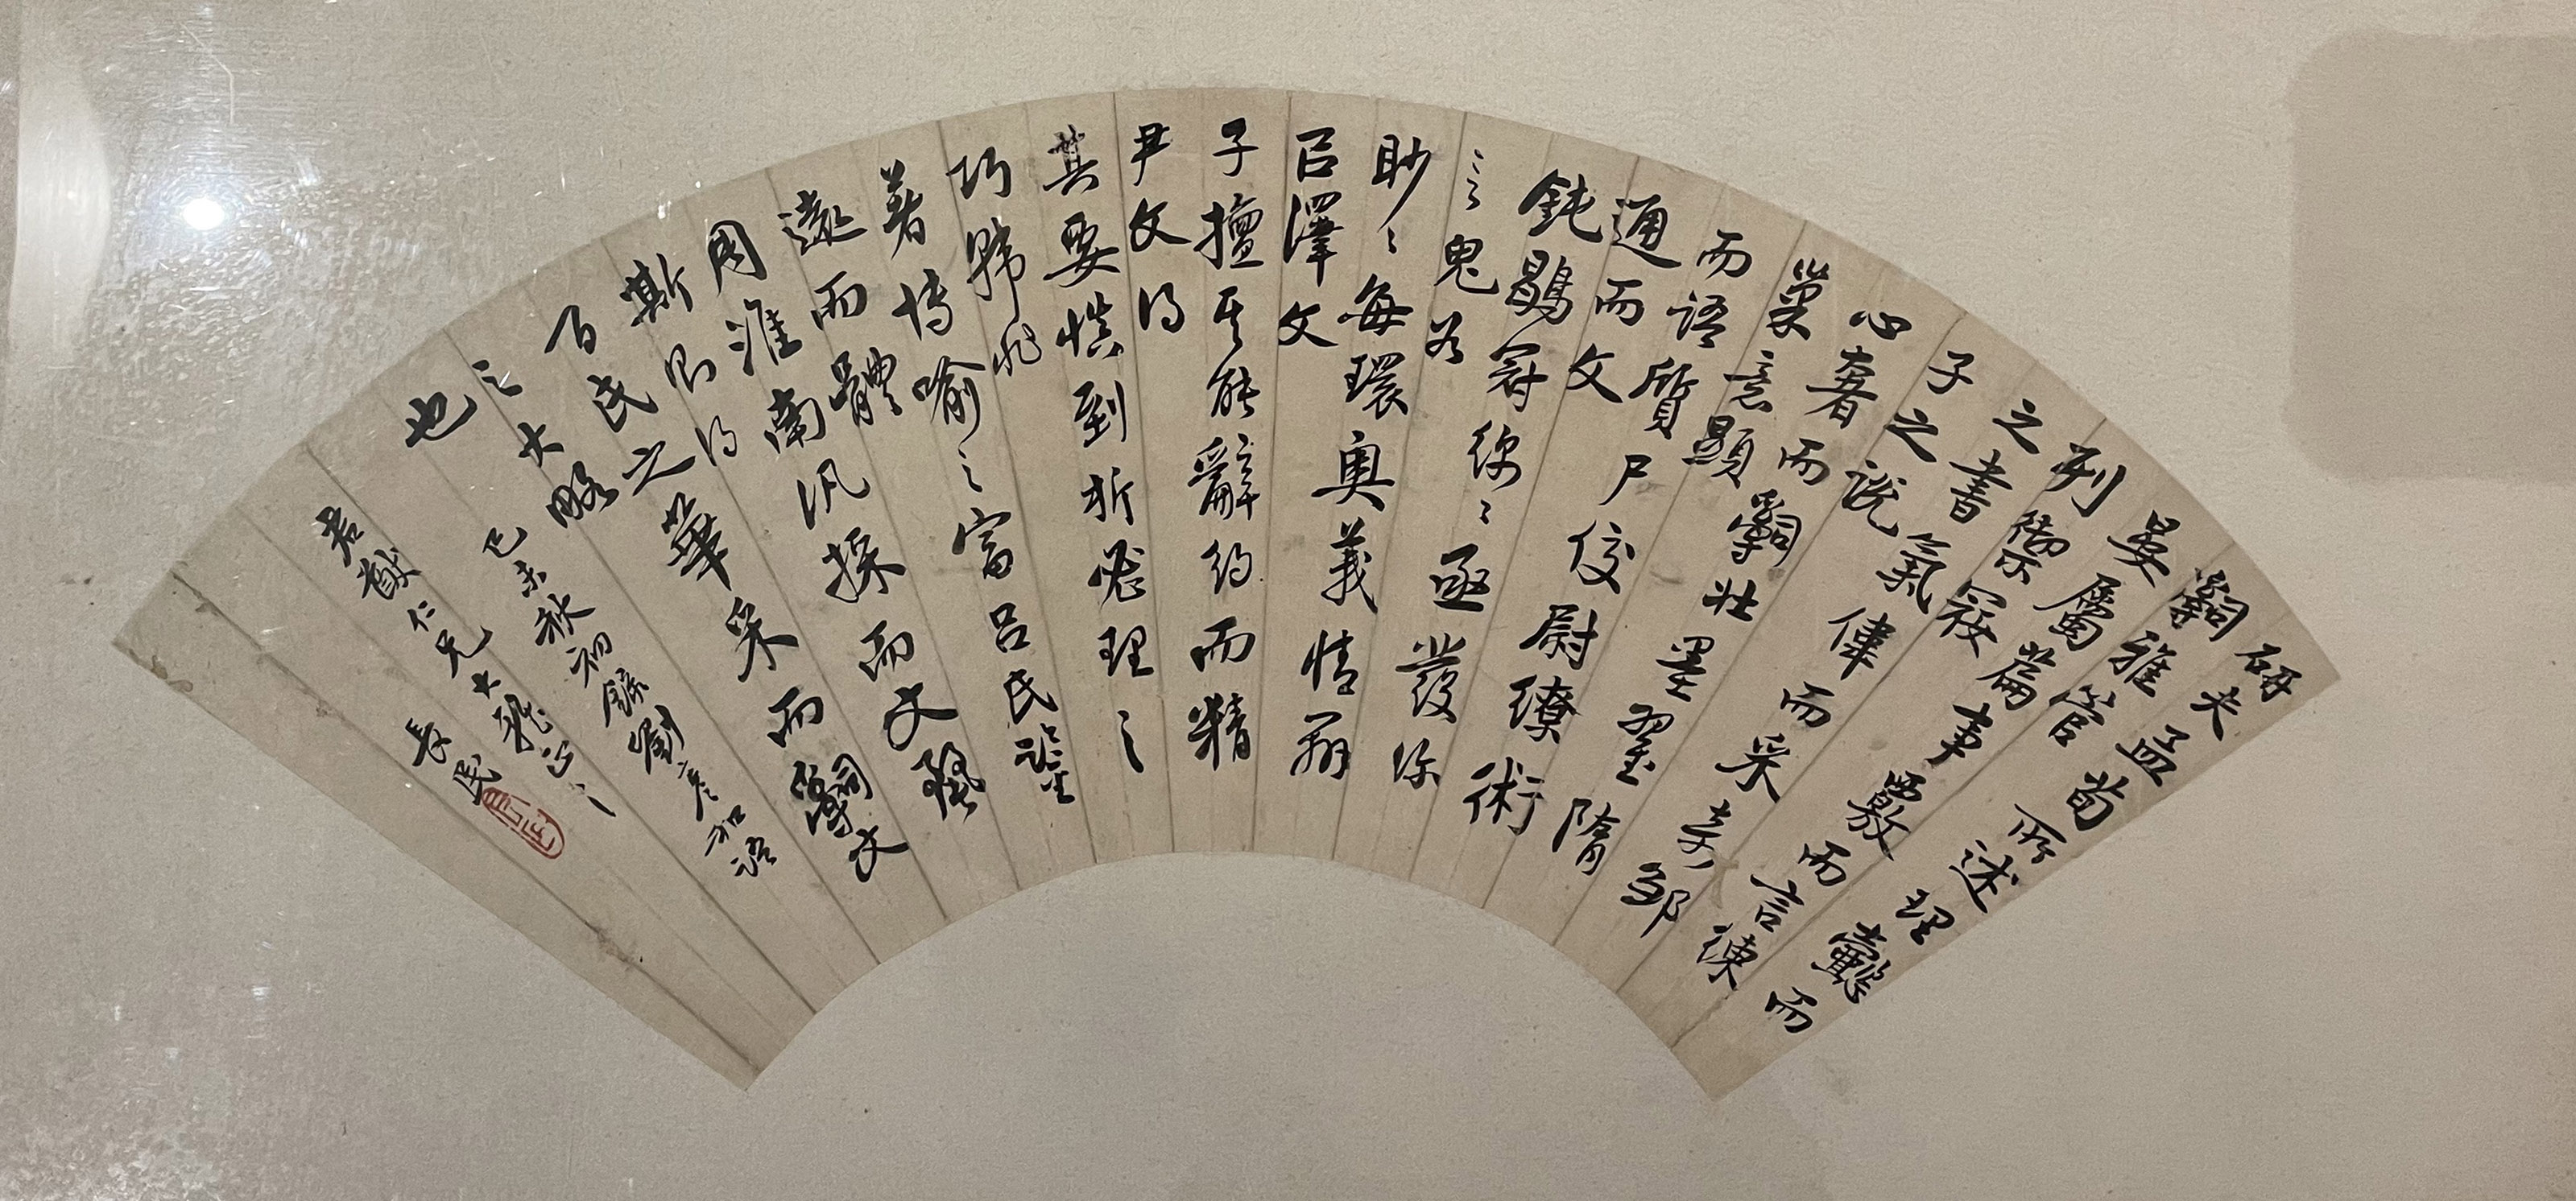 研夫孟荀所述理懿而
辭雅管
晏屬篇事覈而言練
列御寇
之書氣偉而采奇鄒
子之說
心奢而辭壯墨翟隋
巢意顯
而語質尸佼尉繚術
通而文
鈍鶡冠綿〻亟發深
言鬼谷
眇〻每環奧義情辨
㠯澤文
子擅其能辭約而精
尹文得
其要慎到析密理之
巧韓非
著博喻之富呂氏鑒
遠而體
周淮南汎採而文麗
斯則得
百氏之華采而辭文
之大略
也
己未秋初錄劉彥和語
君猷仁兄大雅正之
長民
長民